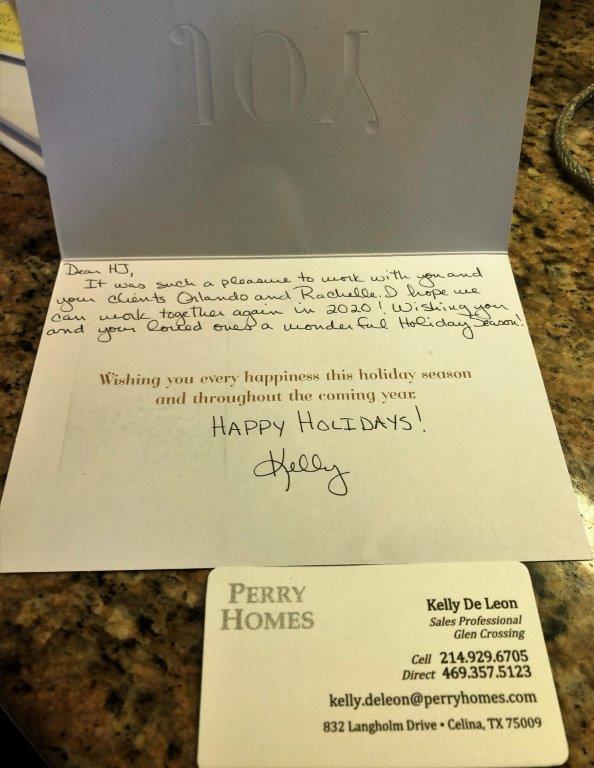 JOY
Dear HJ,
It was such a pleasure to work with you and
your clients Orlando and Rachelle. I hope we
can work together again in 2020! Wishing you
and your loved ones a wonderful Holiday Season!
Wishing you every happiness this holiday season
and throughout the coming year.
HAPPY HOLIDAYS!
Kelly
PERRY
HOMES
Kelly De Leon
Sales Professional
Glen Crossing
Cell 214.929.6705
Direct 469.357.5123
kelly.deleon@perryhomes.com
832 Langholm Drive • Celina, TX 75009